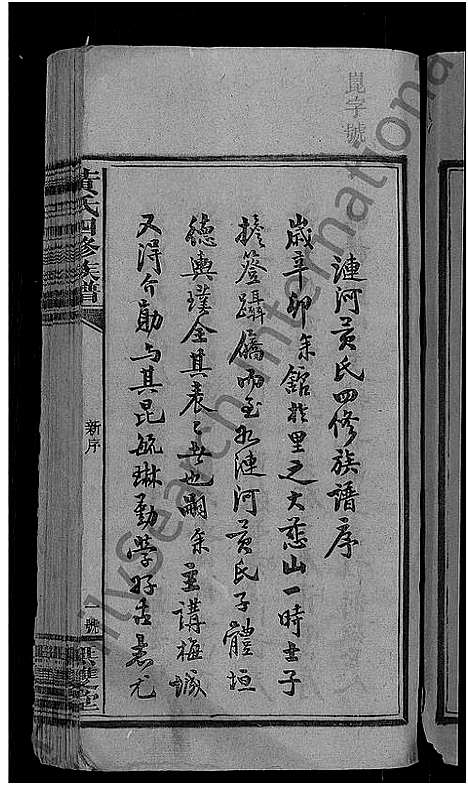 崑字號
漣河黃氏四修族譜序
歲辛卯余館於里之大慈山一時士子
擔簦躡屩而至如漣河黃氏子體垣
德輿瑾全其表表者也嗣余主講梅城
又得介勛与其昆毓琳勤學好古意尤
黃氏四修族譜
新序
一號
雙堂
FamilySearch International